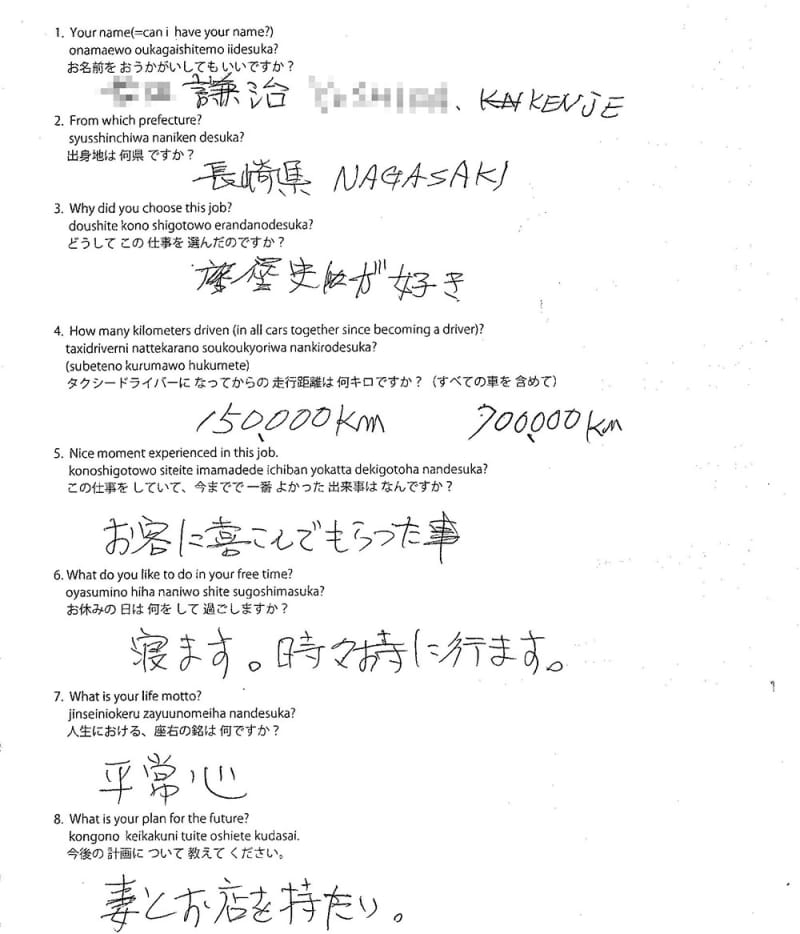 1. Your name(=can i have your name?)
onamaewo oukagaishitemo iidesuka?
お名前を おうかがいしても いいですか？
謙治 、KENJE
2. From which prefecture?
syusshinchiwa naniken desuka?
出身地は 何県 ですか？
長崎県 NAGASAKI
3. Why did you choose this job?
doushite kono shigotowo erandanodesuka?
どうして この 仕事を 選んだのですか？
が好き
4. How many kilometers driven (in all cars together since becoming a driver)?
taxidriverni nattekarano soukoukyoriwa nankirodesuka?
(subeteno kurumawo hukumete)
タクシードライバーに なってからの 走行距離は 何キロですか？（すべての車を 含めて）
150,000km 700,000km
5. Nice moment experienced in this job.
konoshigotowo siteite imamadede ichiban yokatta dekigotoha nandesuka?
この仕事を していて、今までで 一番 よかった 出来事は なんですか？
お客に喜こんでもらった事
6. What do you like to do in your free time?
oyasumino hiha naniwo shite sugoshimasuka?
お休みの 日は 何を して 過ごしますか？
寝ます。時々お寺に行ます。
7. What is your life motto?
jinseiniokeru zayuunomeiha nandesuka?
人生における、座右の銘は 何ですか？
平常心
8. What is your plan for the future?
kongono keikakuni tuite oshiete kudasai.
今後の 計画に ついて 教えて ください。
妻とお店を持たい。